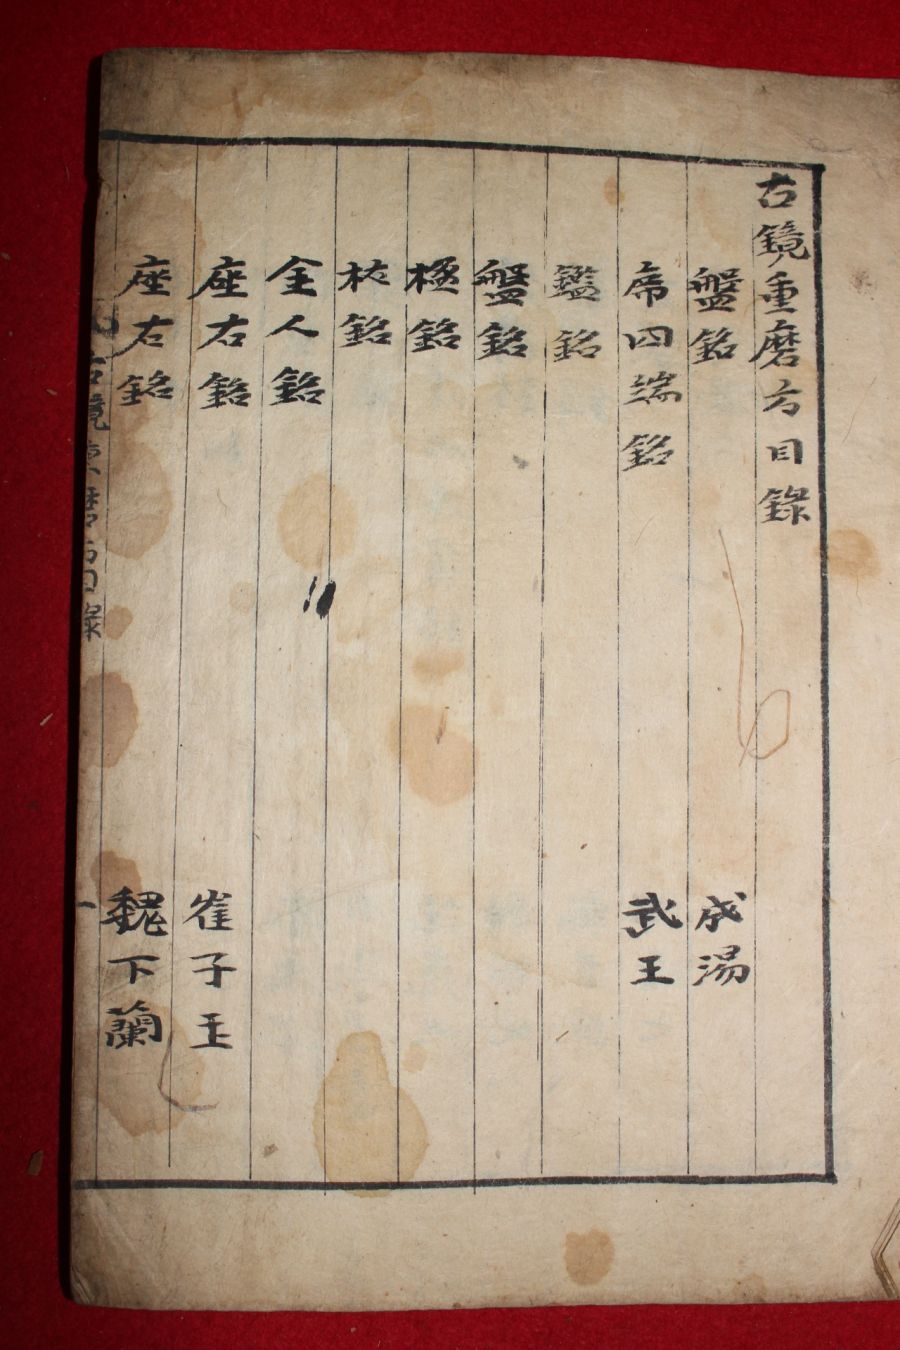 古鏡重磨方目錄
盤銘 成湯
席四端銘 武王
鑑銘
盤銘
楹銘
杖銘
金人銘
座右銘 崔子玉
座右銘 魏下蘭
古鏡重磨方目錄 一